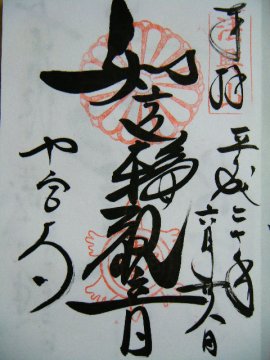 奉拝
平成二十年
六月廿八日
如意輪観音
中宮寺